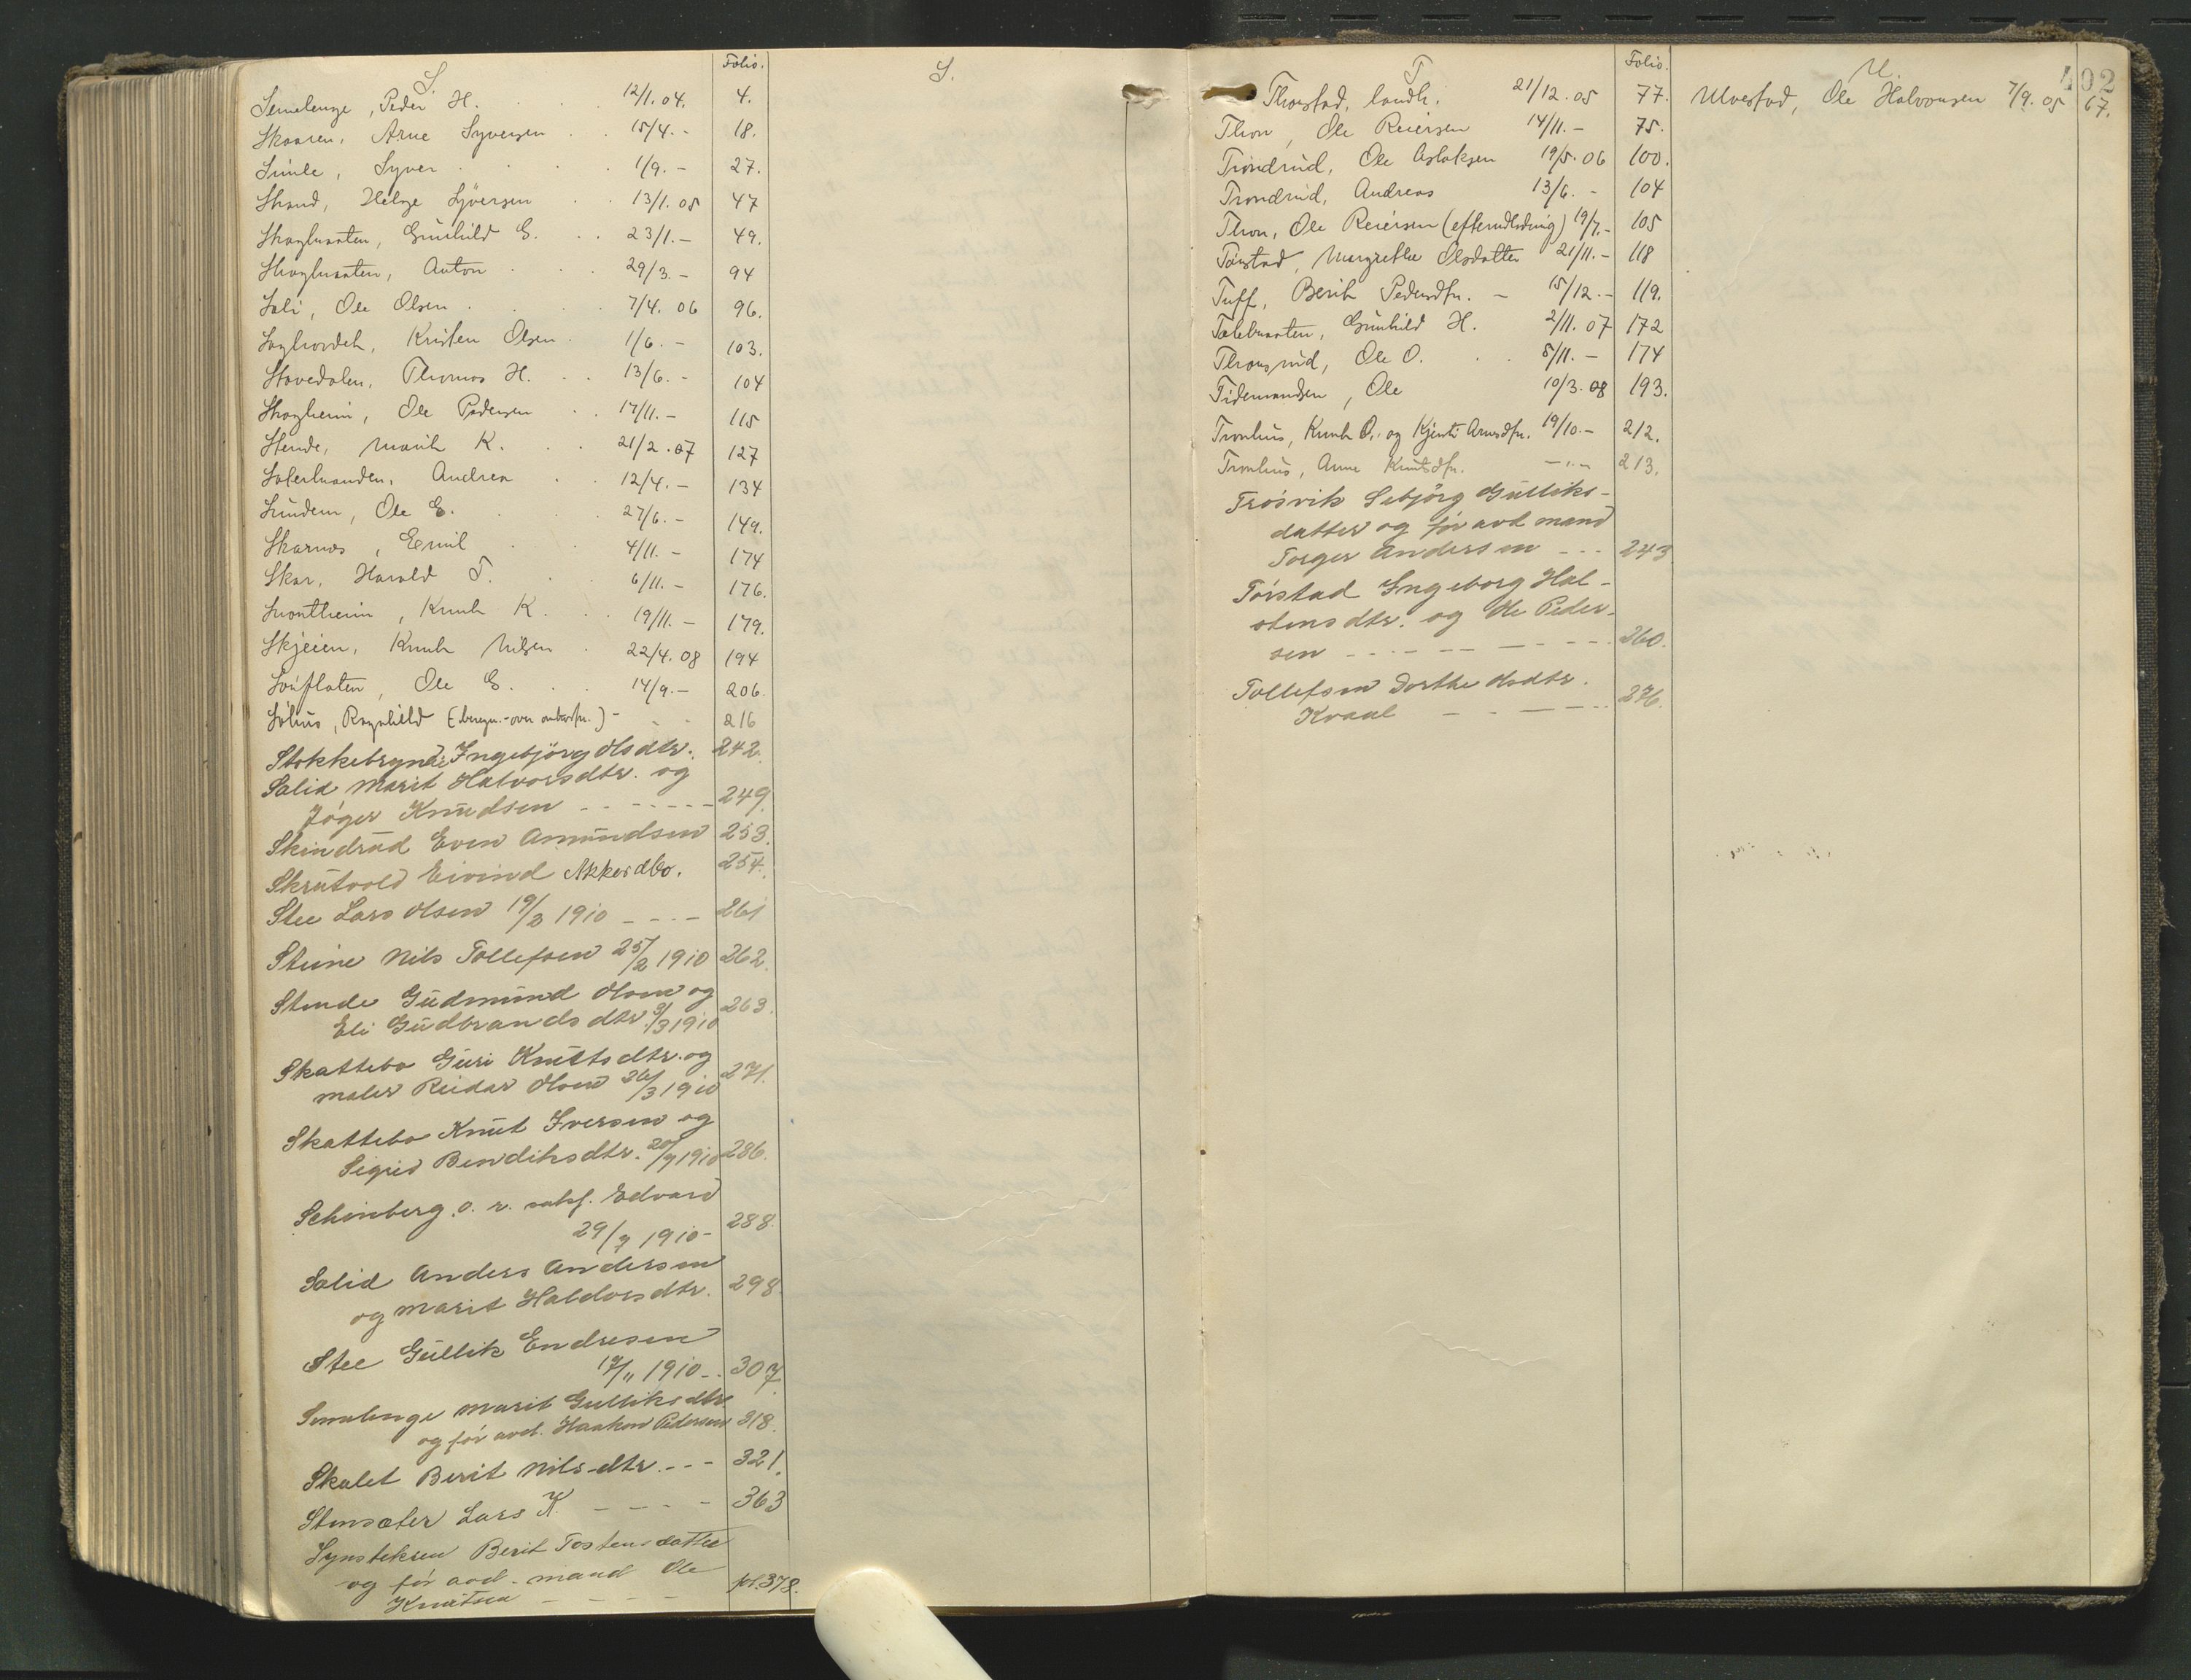 S. Folio.
Semelenge, Peder H. 12/1. 04. 4.
Skaaren, Arne Syversen 15/4. - 18.
Simle, Syver 1/9. - 27.
Strand, Helge Syversen 13/1. 05 47
Skoglunten, Gunhild G. 23/1. - 49.
Anton 29/3. - 94
Soli, Ole Olsen 7/4. 06 96.
Kristen Olsen 1/6. - 103.
Stavedalen, Thomas H. 13/6. - 104
Skogheim, Ole Pedersen 17/11. - 115
Stende, Marit K. 21/2. 07 127
Andrea 12/4. - 134
Sundem, Ole E. 27/6. - 149.
Skarnes, Emil 4/11. - 174
Skar, Harald T. 6/11. - 176.
Svontheim, Knut K. 19/11. - 179.
Skjeien, Knut Nilsen 22/4. 08 194
Ole E. 14/9. - 206.
Sölhus, Ragnhild 216
Stokkebryn Ingebjörg Olsdtr. 242.
Salid Marit Halvorsdtr. og
Jöger Knudsen - - - - - - 249.
Skindrud Even Amundsen 253.
Skrutvold Eivind Akkordbo. 254.
Stee Lars Olsen 19/2 1910 - - - - 261
Steine Nils Tollefsen 25/2 1910 262.
Stende Gudmund Olsen og 263.
Eli Gudbrandsdtr. 3/3 1910
Skattebo Guri Knutsdtr. og 271.
maler Reidar Olsen 26/3 1910
Skattebo Knut Iversen og
Sigrid Bendiksdtr. 20/7 1910 286.
Schönberg o. r. sakf. Edvard
29/7 1910 - 288.
Salid Anders Andersen
og Marit Haldorsdtr. 298
Stee Gullik Endresen
17/11 1910 - . 307.
Semelenge Marit Gulliksdtr.
og för avd. Haakon Pedersen 318.
Skalet Berit Nilsdtr. - - - 321.
Stensæter Lars K. - - - - 363
Synsteksen Berit Tostensdatter
og för avd. mand Ole
Knutsen - - - - fol. 378.
S.
T Folio.
Thorstad, landh. 21/12. 05 77.
Thon, Ole Reiersen 14/11. - 75.
Trondrud, Ole Aslaksen 19/5. 06 100.
Trondrud, Andreas 13/6. - 104
Thon, Ole Reiersen (efterudlodning) 19/7. - 105
Törstad, Margrethe Olsdatter 21/11. - 118
Tuff, Berit Pedersdtr. - 15/12. - 119.
Gunhild H. 2/11. 07 172
Thorsrud, Ole O. 5/11. - 174
Tidemandsen, Ole 10/3. 08 193.
Tronhus, Knut O. og Kjersti Arnesdtr. 19/10. - 212.
Tronhus, Anne Knutsdtr. - " - 213.
Trösvik Sebjörg Gulliks-
datter og för avd mand
Torger Andersen - - - 243
Törstad Ingeborg Hal-
stensdtr. og Ole Peder-
sen - - - - - - - - 260.
Tollefsen Dorthe Olsdtr.
Kvaal - - - - - 276.
U. 402
Ulvestad, Ole Halvorsen 7/9. 05 67.